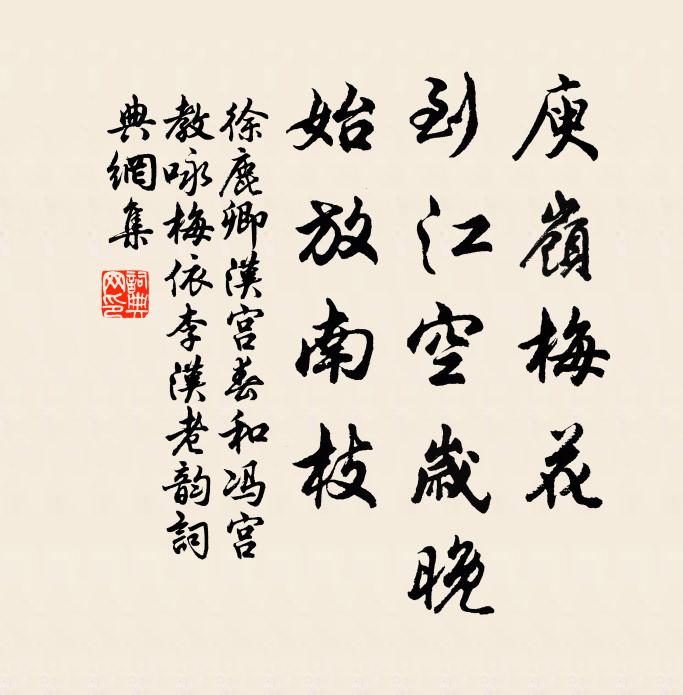 庾嶺梅花
到江空歲晚
始放南枝
徐鹿卿漢宮春和冯宫
教咏梅依李漢老韵詞
典網集
詞典
网印